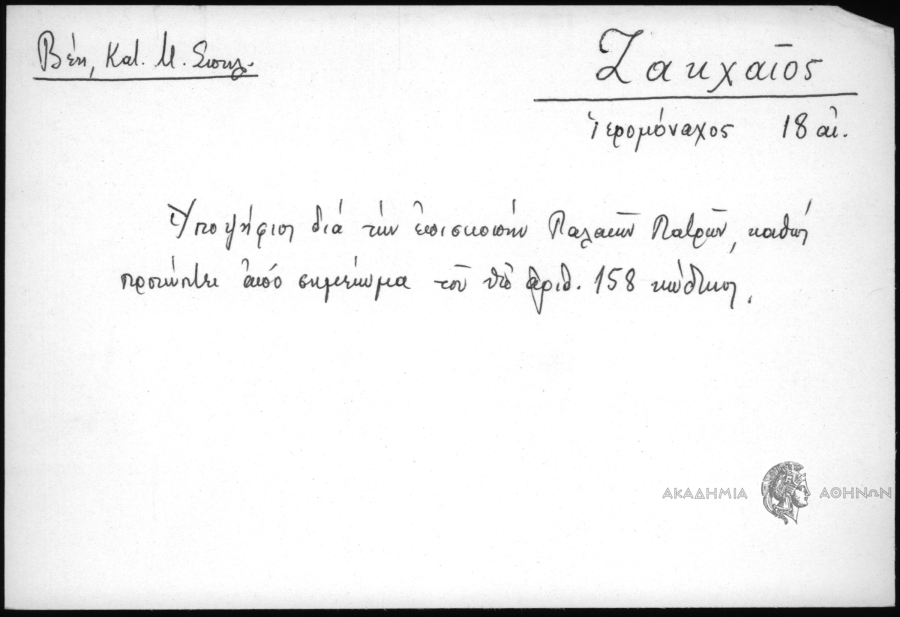 Βέη, Κατ. Μ. Σπηλ.
Ζακχαῖος
ἱερομόναχος 18 αἰ.
Ὑποψήφιος διά τήν ἐπισκοπήν Παλαιῶν Πατρῶν, καθώς
προκύπτει ἀπό σημείωμα τοῦ ὑπ' ἀριθ. 158 κώδικος.
ΑΚΑΔΗΜΙΑ ΑΘΗΝΩΝ